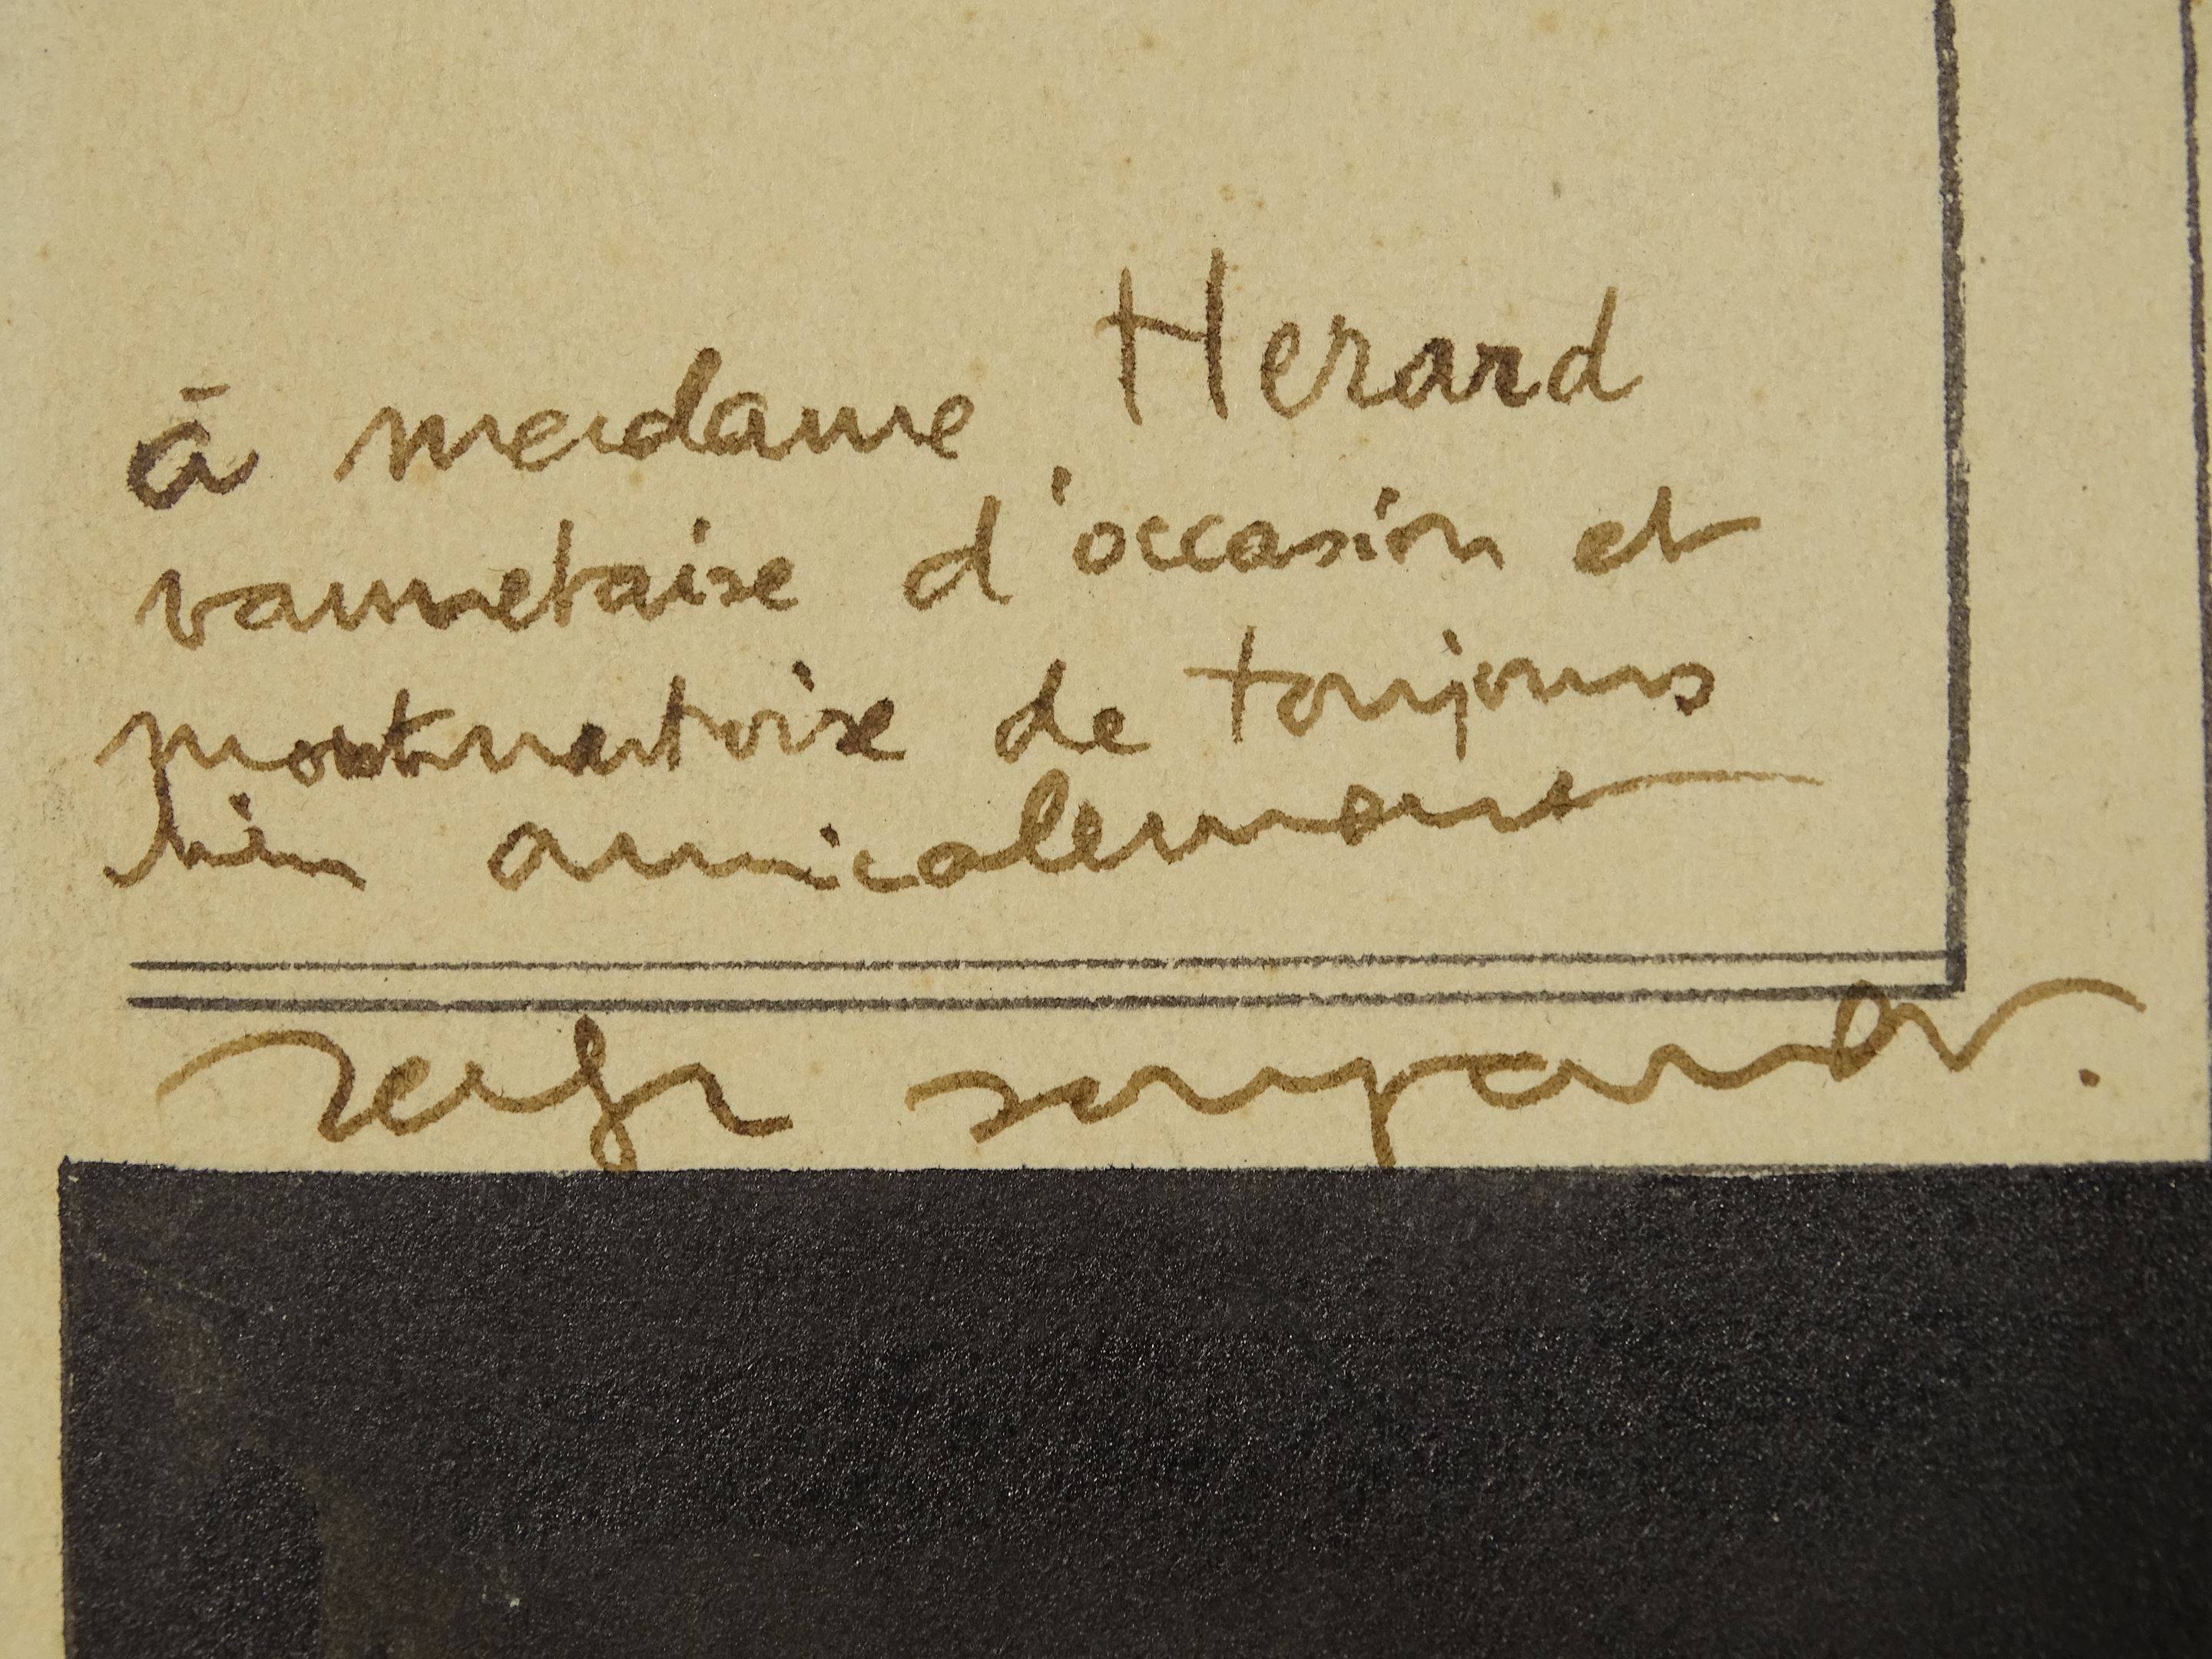 à madame Herard
vannetaise d'occasion et
montmartoise de toujours
bien amicalement
serge